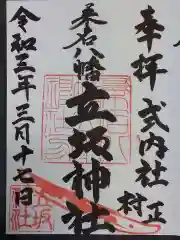 奉拝
式内社
村正
桑名八幡
立坂神社
令和三年三月十七日